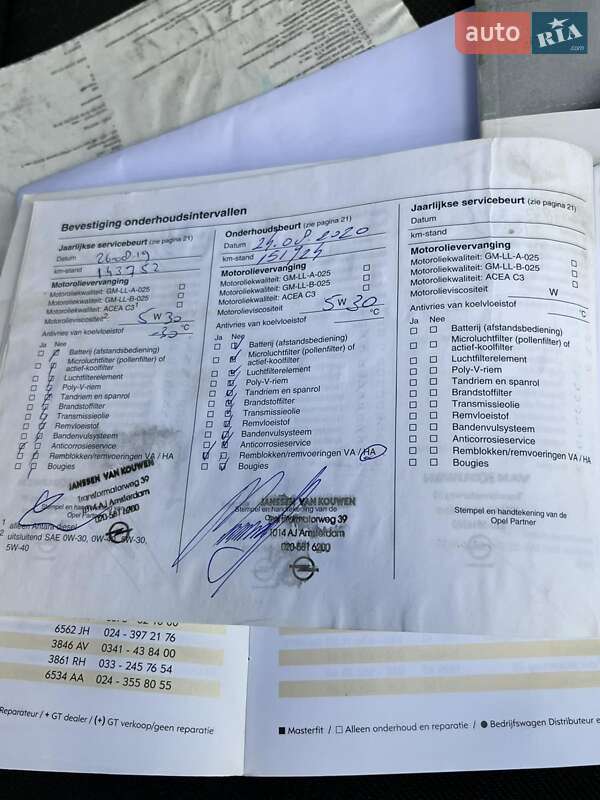 auto RIA .com
Bevestiging onderhoudsintervallen
Jaarlijkse servicebeurt (zie pagina 21)
Datum 26.08.19
km-stand 143752
Motorolievervanging
Motoroliekwaliteit: GM-LL-A-025
Motoroliekwaliteit: GM-LL-B-025
Motoroliekwaliteit: ACEA C3¹
Motorolieviscositeit² 5 W 30
Antivries van koelvloeistof -30 °C
Ja Nee
Batterij (afstandsbediening)
Microluchtfilter (pollenfilter) of
actief-koolfilter
Luchtfilterelement
Poly-V-riem
Tandriem en spanrol
Brandstoffilter
Transmissieolie
Remvloeistof
Bandenvulsysteem
Anticorrosieservice
Remblokken/remvoeringen VA / HA
Bougies
JANSSEN VAN KOUWEN
Transformatorweg 39
1014 AJ Amsterdam
020-581 6200
Stempel en
Opel Partner
1 alleen Antara diesel
2 uitsluitend SAE 0W-30, 0W-40, 5W-30,
5W-40
Onderhoudsbeurt (zie pagina 21)
Datum 24.08.2020
km-stand 151724
Motorolievervanging
Motoroliekwaliteit: GM-LL-A-025
Motoroliekwaliteit: GM-LL-B-025
Motoroliekwaliteit: ACEA C3
Motorolieviscositeit 5 W 30
Antivries van koelvloeistof °C
Ja Nee
Batterij (afstandsbediening)
Microluchtfilter (pollenfilter) of
actief-koolfilter
Luchtfilterelement
Poly-V-riem
Tandriem en spanrol
Brandstoffilter
Transmissieolie
Remvloeistof
Bandenvulsysteem
Anticorrosieservice
Remblokken/remvoeringen VA / HA
Bougies
JANSSEN VAN KOUWEN
Stempel en handtekening van de
Transformatorweg 39
1014 AJ Amsterdam
020-581 6200
Jaarlijkse servicebeurt (zie pagina 21)
Datum
km-stand
Motorolievervanging
Motoroliekwaliteit: GM-LL-A-025
Motoroliekwaliteit: GM-LL-B-025
Motoroliekwaliteit: ACEA C3
Motorolieviscositeit W
Antivries van koelvloeistof °C
Ja Nee
Batterij (afstandsbediening)
Microluchtfilter (pollenfilter) of
actief-koolfilter
Luchtfilterelement
Poly-V-riem
Tandriem en spanrol
Brandstoffilter
Transmissieolie
Remvloeistof
Bandenvulsysteem
Anticorrosieservice
Remblokken/remvoeringen VA/HA
Bougies
Stempel en handtekening van de
Opel Partner
6562 JH 024 - 397 21 76
3846 AV 0341 - 43 84 00
3861 RH 033 - 245 76 54
6534 AA 024 - 355 80 55
Reparateur / + GT dealer / (+) GT verkoop/geen reparatie
■ Masterfit / □ Alleen onderhoud en reparatie / ● Bedrijfswagen Distributeur e